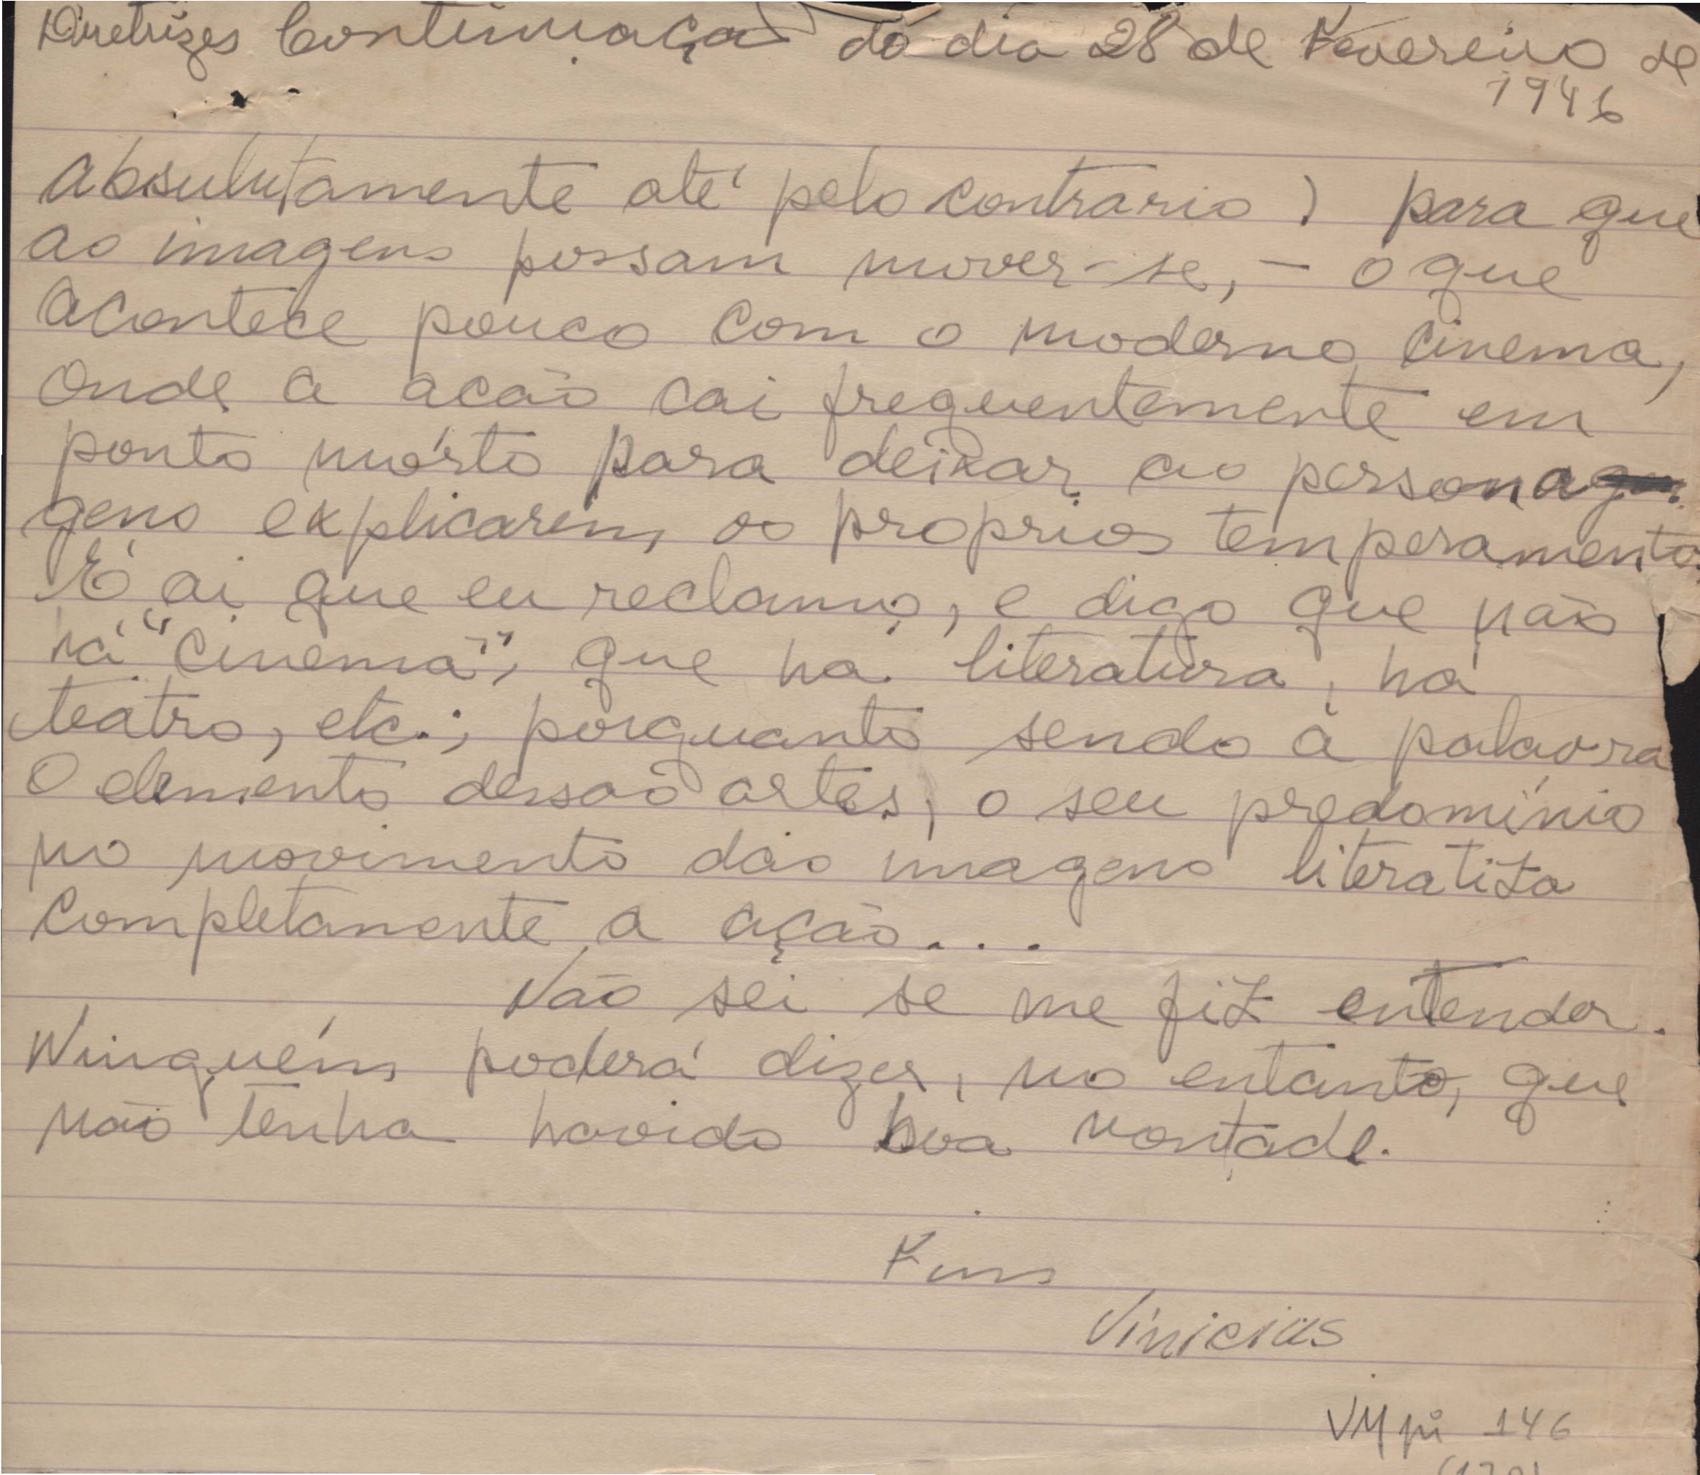 Diretrizes Continuação do dia 28 de Fevereiro de
1946
absulutamente até pelo contrario) para que
as imagens possam mover-se, - o que
acontece pouco com o moderno cinema,
onde a acão cai frequentemente em
ponto mórto para deixar as persona
gens explicarem os proprios temperamentos.
É ai que eu reclamo, e digo que não
há "cinema", que há literatura, há
teatro, etc.; porquanto sendo a palavra
o elemento dessas artes, o seu predomínio
no movimento das imagens literatiza
completamente a ação...
Não sei se me fiz entender.
Ninguém poderá dizer, no entanto, que
não tenha havido boa vontade.
Fim
Vinicius
VMpi 146